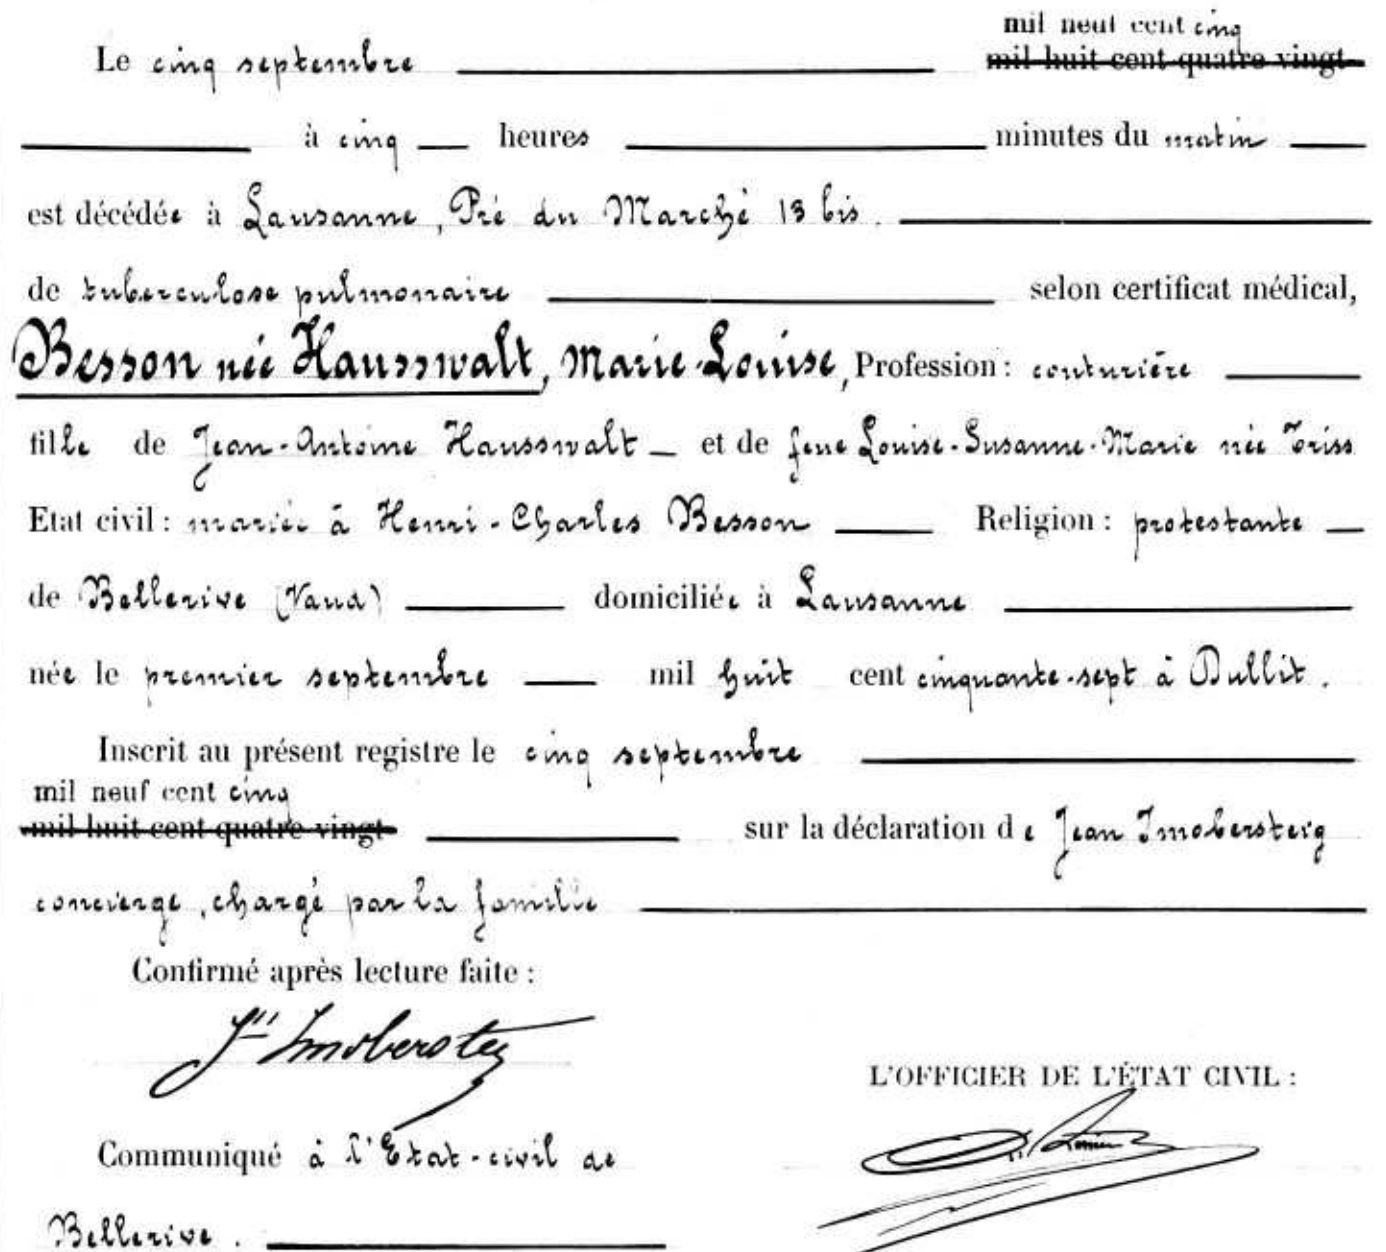 mil neuf cent cinq
Le cinq septembre mil huit cent quatre vingt
à cinq heures minutes du matin
est décédée à Lausanne, Pré du Marché 13 bis.
de tuberculose pulmonaire selon certificat médical,
Besson née Hausswalt, Marie-Louise, Profession : couturière
fille de Jean-Antoine Hausswalt et de feue Louise-Susanne-Marie née Triss
Etat civil : mariée à Henri-Charles Besson Religion : protestante
de Bellerive (Vaud) domiciliée à Lausanne
née le premier septembre mil huit cent cinquante-sept à Dullit.
Inscrit au présent registre le cinq septembre
mil neuf cent cinq
mil huit cent quatre vingt sur la déclaration de Jean Imobersteig
concierge, chargé par la famille
Confirmé après lecture faite :
Jn Imobersteg
L'OFFICIER DE L'ÉTAT CIVIL :
Communiqué à l'Etat-civil de
Bellerive.